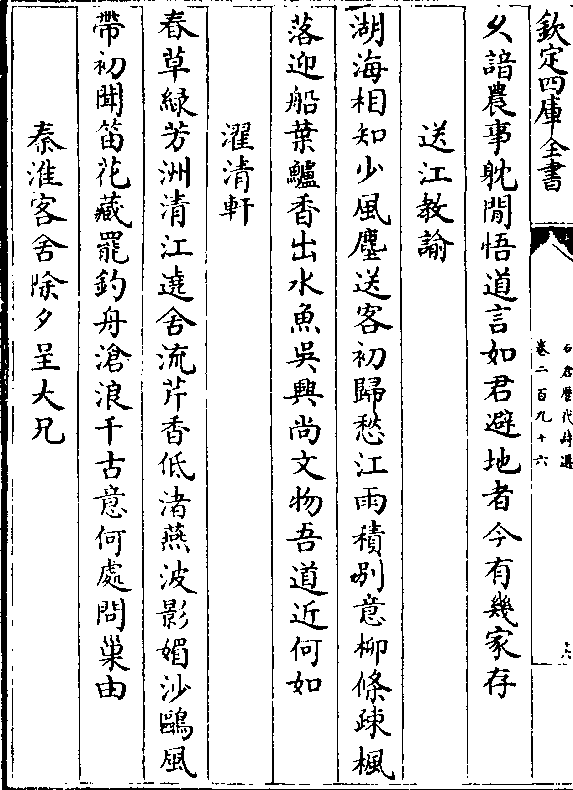 欽定四庫全書
石倉歷代詩選
卷二百九十六
久諳農事躭閒悟道言如君避地者今有幾家存
送江教諭
湖海相知少風塵送客初歸愁江雨積别意柳條疎楓
落迎船葉鱸香出水魚吳興尚文物吾道近何如
濯清軒
春草綠芳洲清江遶舍流芹香低渚燕波影媚沙鷗風
帶初聞笛花藏罷釣舟滄浪千古意何處問巢由
秦淮客舍除夕呈大兄